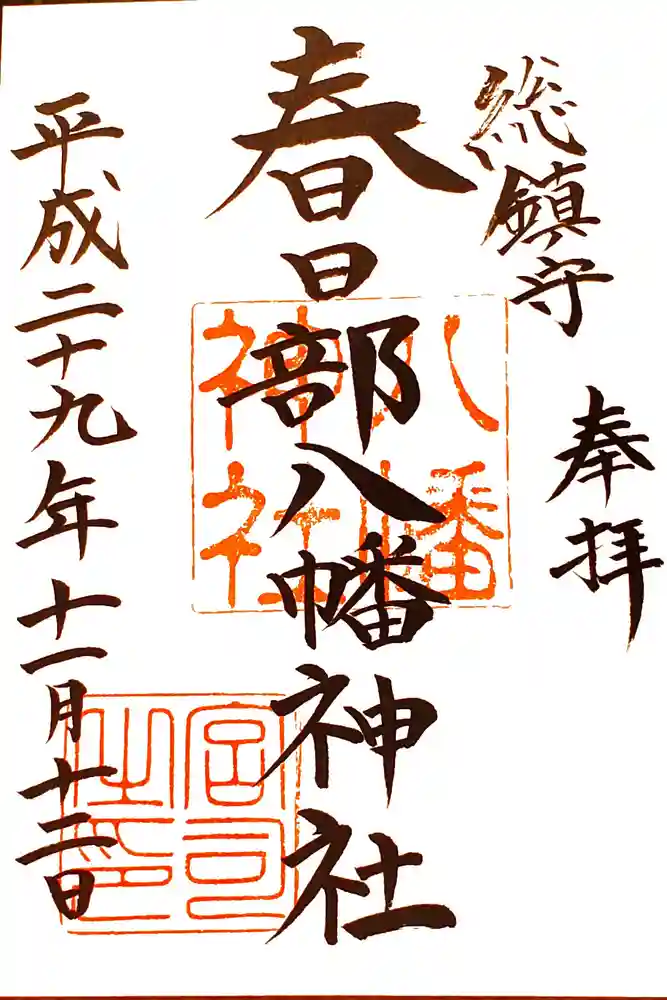 総鎮守
奉拝
春日部八幡神社
平成二十九年十一月十二日
八幡
神社
宮司
之印